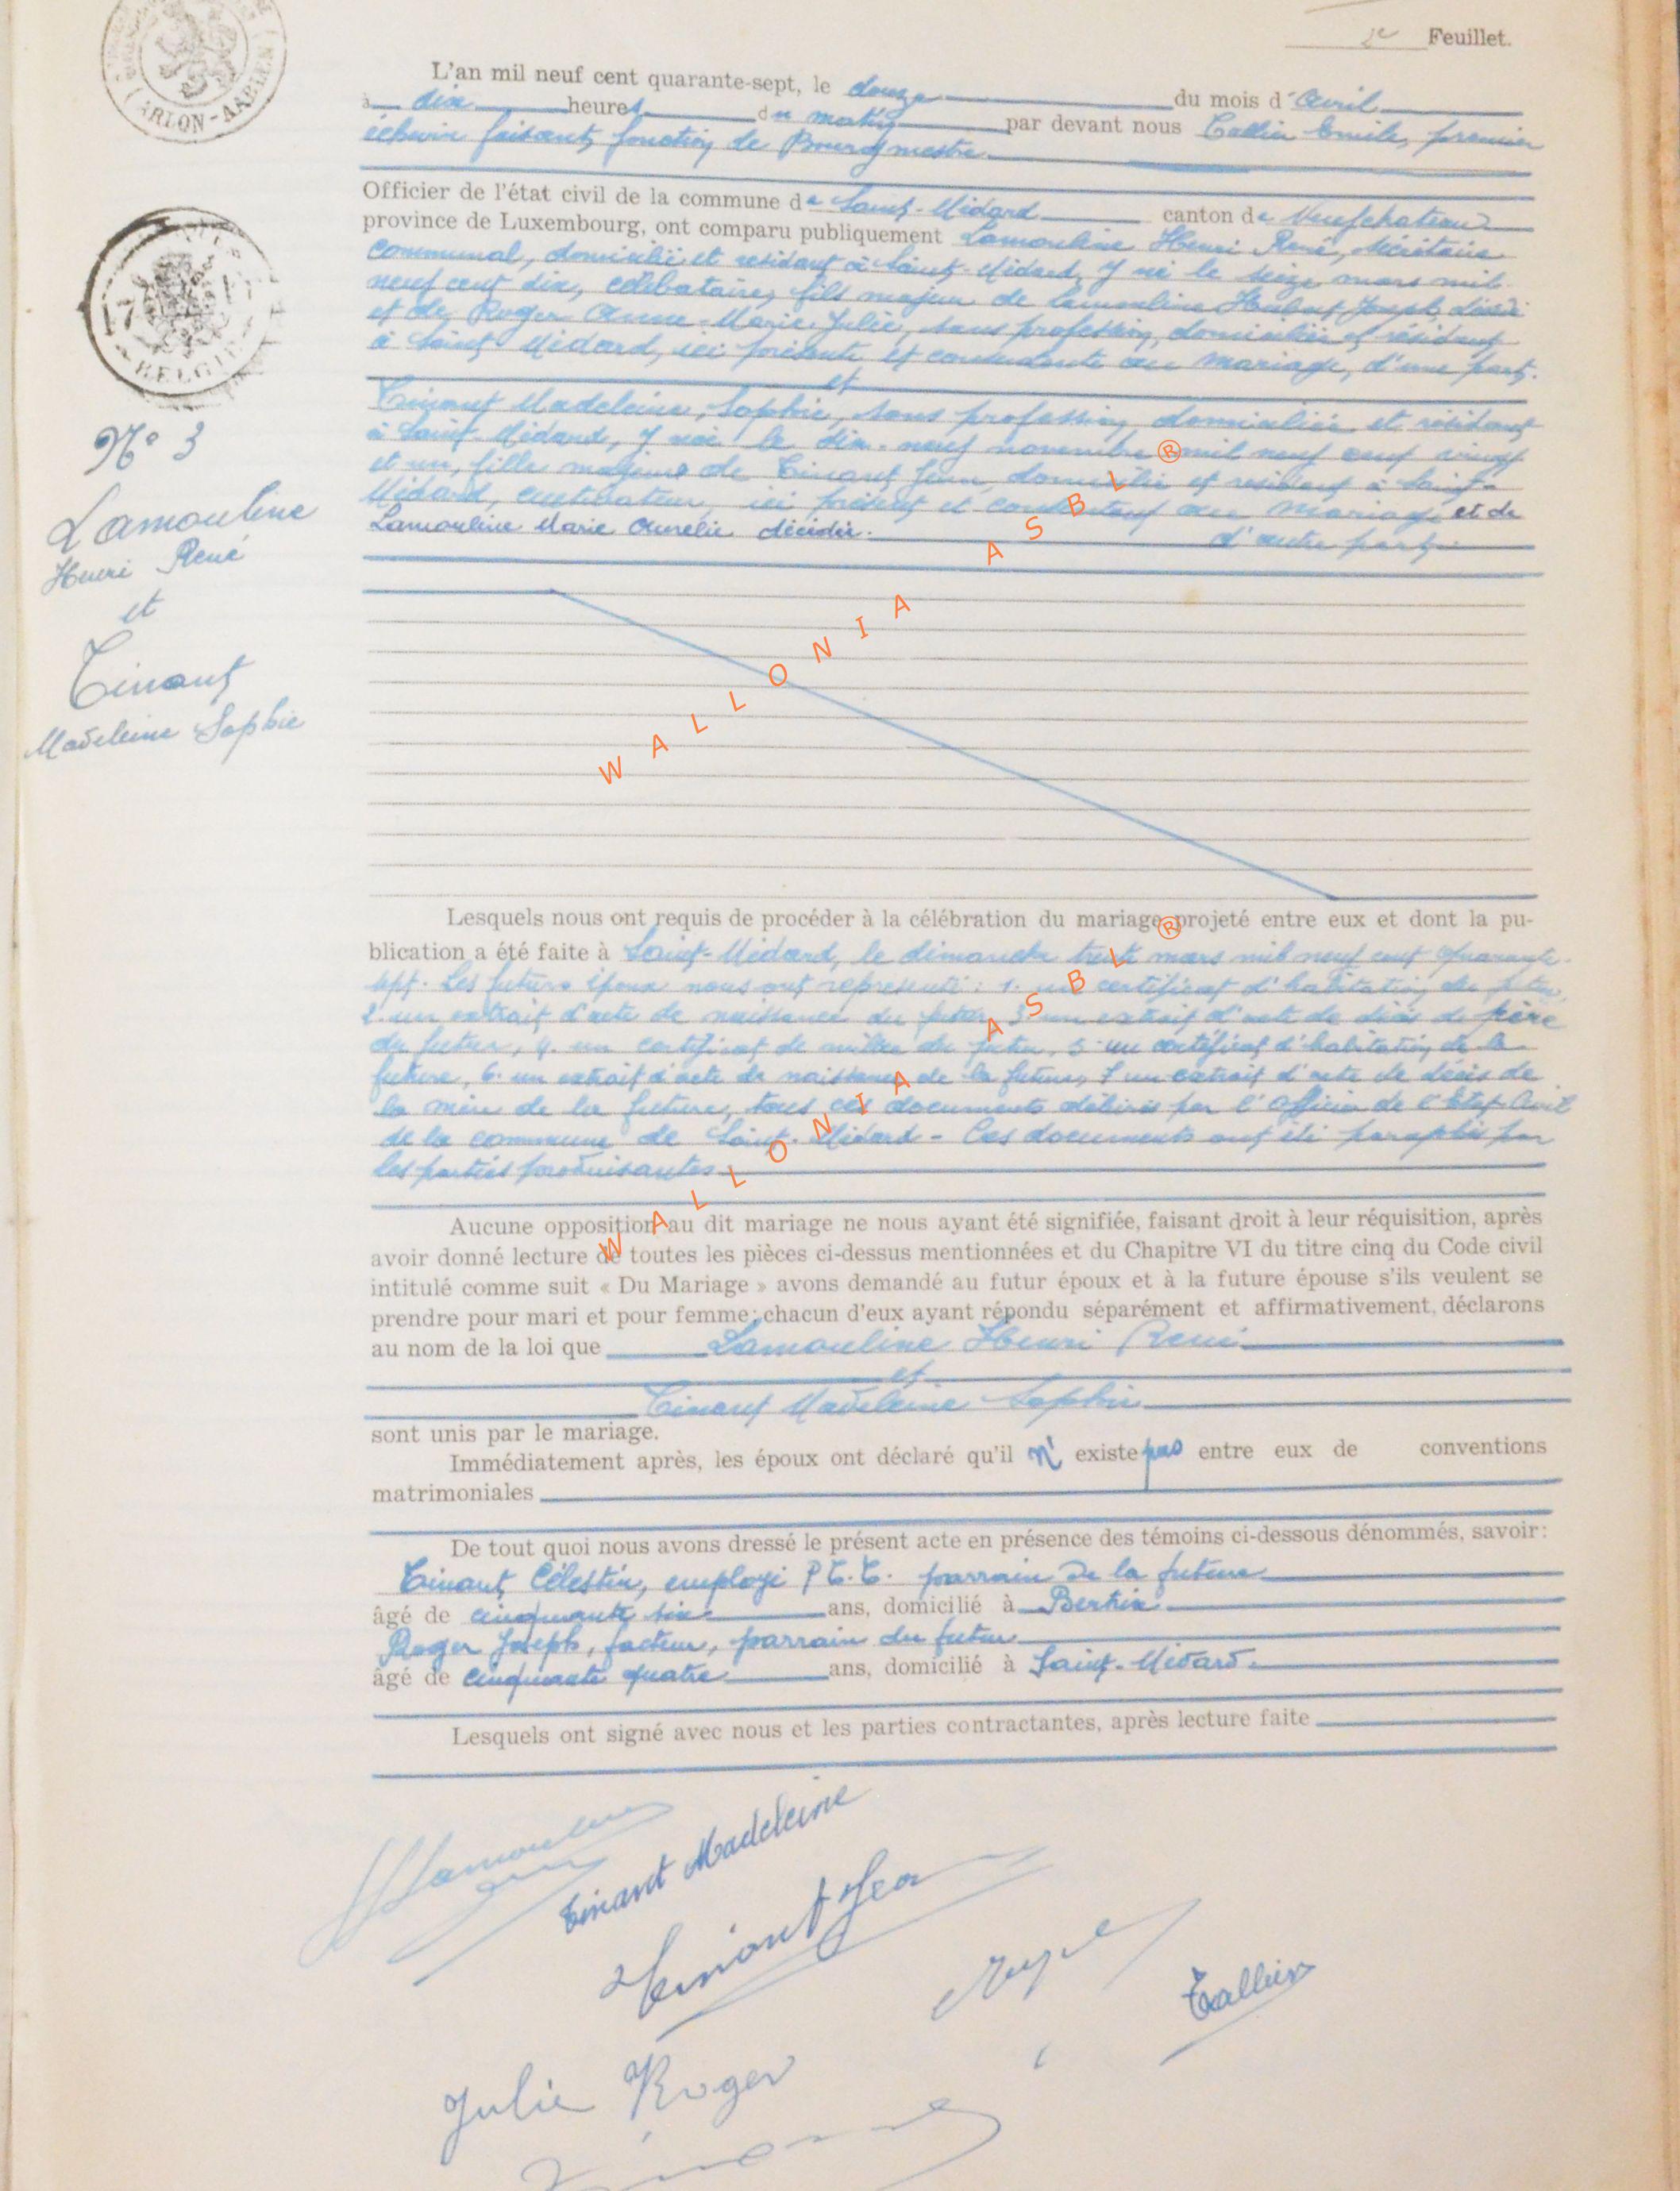 2e Feuillet.
ARLON-AARLEN
BELGIE
L'an mil neuf cent quarante-sept, le douze du mois d'avril
à dix heures du matin par devant nous Emile, premier
échevin faisant fonction de Bourgmestre
Officier de l'état civil de la commune de Saint-Médard canton de Neufchateau
province de Luxembourg, ont comparu publiquement Lamouline Henri René, Secrétaire
communal, domicilié et résidant à Saint-Médard, y né le seize mars mil
neuf cent dix, célibataire, fils majeur de Lamouline Hubert Joseph, décédé
et de Roger Anne-Marie-Julie, sans profession, domiciliée et résidant
à Saint-Médard, ici présente et consentante au mariage, d'une part.
et
Tinant Madeleine, Sophie, sans profession, domiciliée et résidant
à Saint-Médard, y née le dix-neuf novembre mil neuf cent vingt
et un, fille majeure de Tinant Jean, domicilié et résidant à Saint-
Médard, cultivateur, ici présent et consentant au mariage et de
Lamouline Marie Aurélie décédée.
d'autre part.
N° 3
Lamouline
Henri René
et
Tinant
Madeleine Sophie
WALLONIA ASBL ®
Lesquels nous ont requis de procéder à la célébration du mariage projeté entre eux et dont la pu-
blication a été faite à Saint-Médard, le dimanche trente mars mil neuf cent quarante-
sept. Les futurs époux nous ont représenté : 1. un certificat d'habitation du futur,
2. un extrait d'acte de naissance du futur, 3. un extrait d'acte de décès de père
du futur, 4. un certificat de milice du futur, 5. un certificat d'habitation de la
future, 6. un extrait d'acte de naissance de la future, 7 un extrait d'acte de décès de
la mère de la future, tous ces documents délivrés par l'Officier de l'Etat Civil
de la commune de Saint-Médard - Ces documents ont été paraphés par
les parties produisantes.
WALLONIA ASBL ®
Aucune opposition au dit mariage ne nous ayant été signifiée, faisant droit à leur réquisition, après
avoir donné lecture de toutes les pièces ci-dessus mentionnées et du Chapitre VI du titre cinq du Code civil
intitulé comme suit « Du Mariage » avons demandé au futur époux et à la future épouse s'ils veulent se
prendre pour mari et pour femme; chacun d'eux ayant répondu séparément et affirmativement, déclarons
au nom de la loi que Lamouline Henri René
et
Tinant Madeleine Sophie
sont unis par le mariage.
Immédiatement après, les époux ont déclaré qu'il n' existe pas entre eux de conventions
matrimoniales
De tout quoi nous avons dressé le présent acte en présence des témoins ci-dessous dénommés, savoir:
Tinant, Célestin, employé P.T.T. parrain de la future
âgé de cinquante six ans, domicilié à Bertrix
Roger Joseph, facteur, parrain du futur
âgé de cinquante quatre ans, domicilié à Saint-Médard.
Lesquels ont signé avec nous et les parties contractantes, après lecture faite
Lamouline
Tinant Madeleine
Tinant Jean
Julie Roger